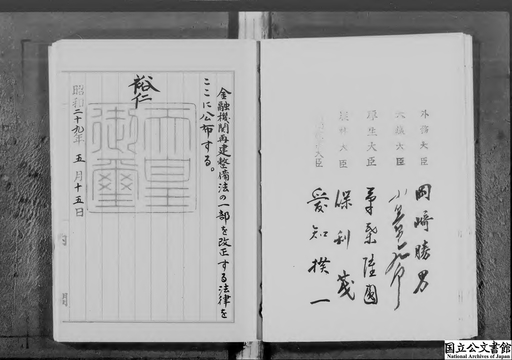 外務大臣 岡崎勝男
大蔵大臣 小笠原三九郎
厚生大臣 草葉隆圓
農林大臣 保利茂
大臣 愛知揆一
金融機関再建整備法の一部を改正する法律を
ここに公布する。
裕仁
天皇
御璽
昭和二十九年五月十五日
国立公文書館
National Archives of Japan